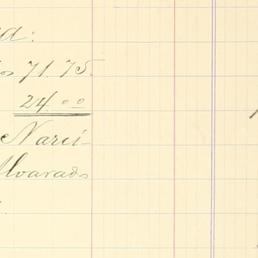 d:
os 71.75.
24 00
Narci-
Alvarado